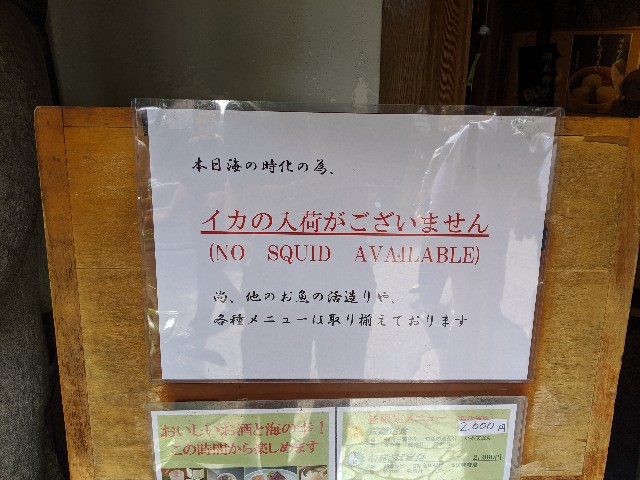 本日海の時化の為、
イカの入荷がございません
(NO SQUID AVAILABLE)
尚、他のお魚の活造りや、
各種メニューは取り揃えております
おいしいお酒と海の幸！
この時間から楽しめます
2,600円
2,000円